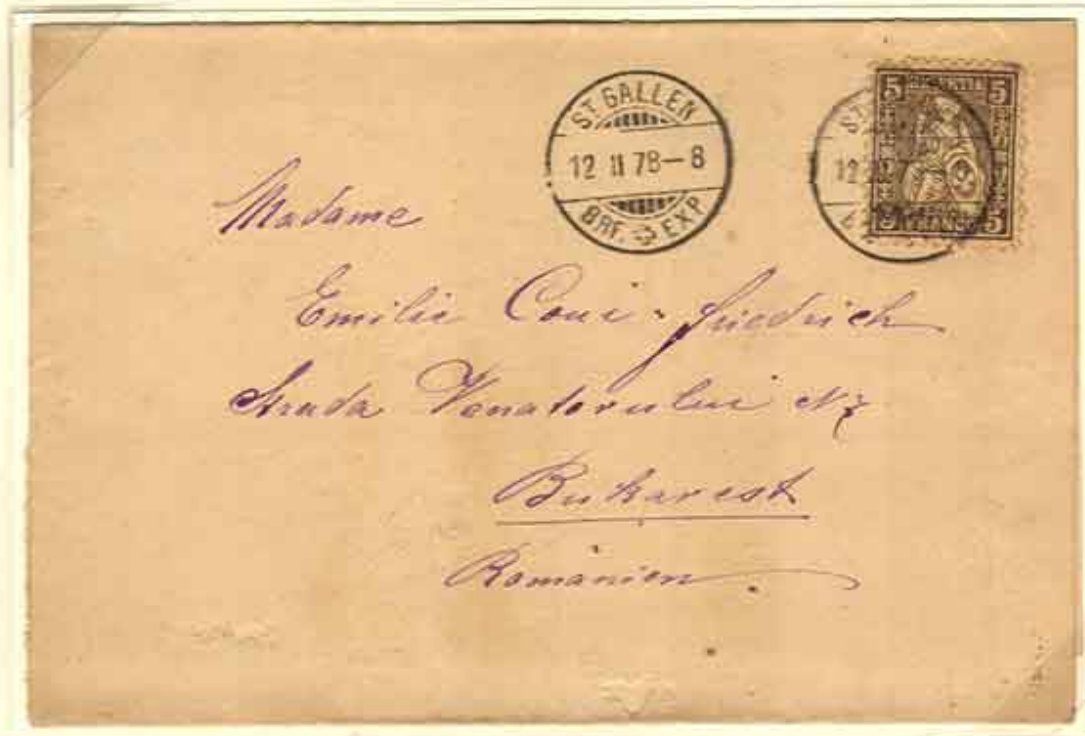 ST. GALLEN
12 II 78–8
BRF. EXP.
5 HELVETIA 5
5 FRANCO 5
Madame
Emilie Coui-Friedrich
Strada Vanatorului
Bukarest
Romänien